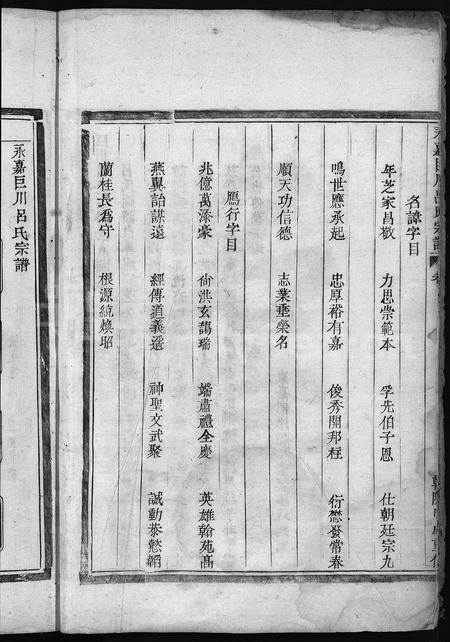 永嘉巨川呂氏宗譜
名諱字目
年芝家昌敬 力思崇範本 孚先伯子恩 仕朝廷宗九
鳴世應承起 忠厚裕有嘉 俊秀開邦 衍懋發常春
順天功信德 志業垂榮名
鴈行字目
兆億萬添豪 尙洪玄謁瑞 端肅禮全慶 英雄翰苑高
燕翼詒謀遠 經傳道義遥 神聖文武聚 誠動恭懿韜
蘭桂長爲守 根源統煥昭
永嘉巨川呂氏宗譜